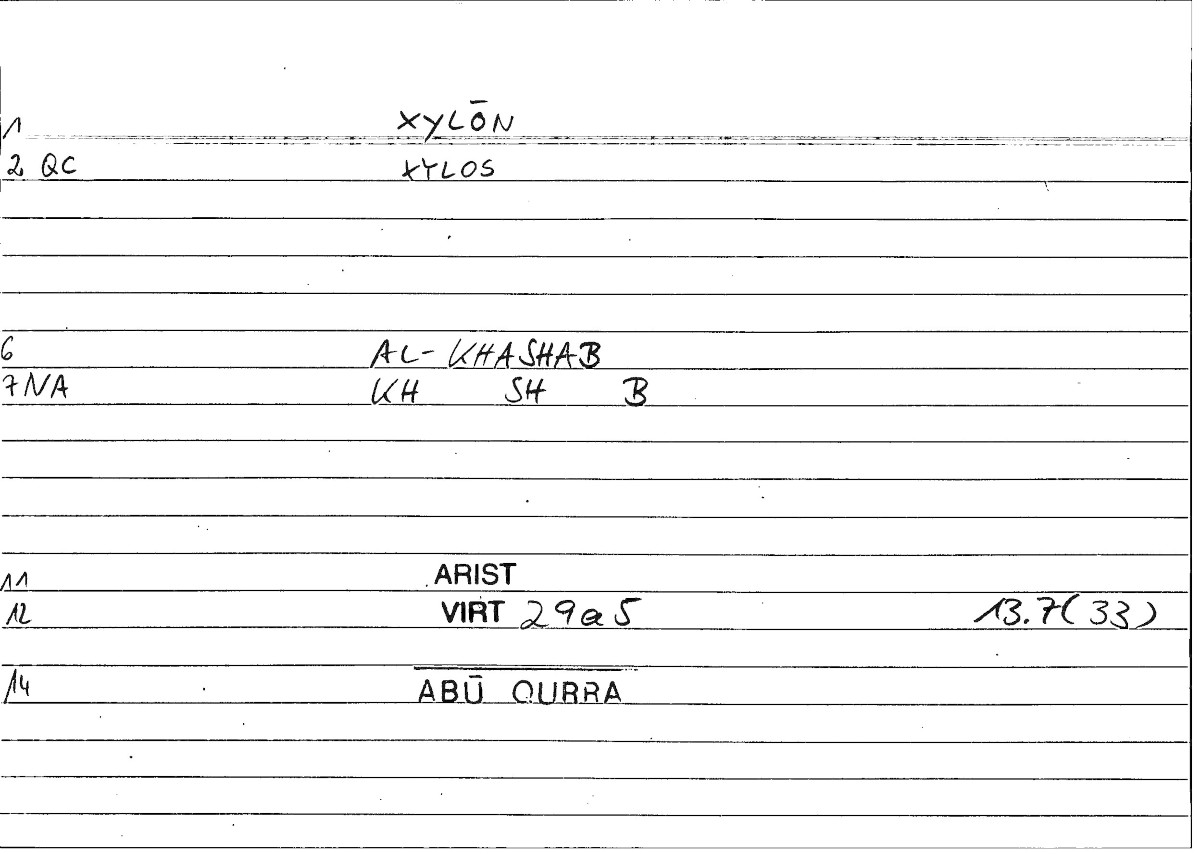 1 XYLŌN
2 QC XYLOS
6 AL-KHASHAB
7 NA KH SH B
11 ARIST
12 VIRT 29a5 13.7(33)
14 ABŪ QURRA